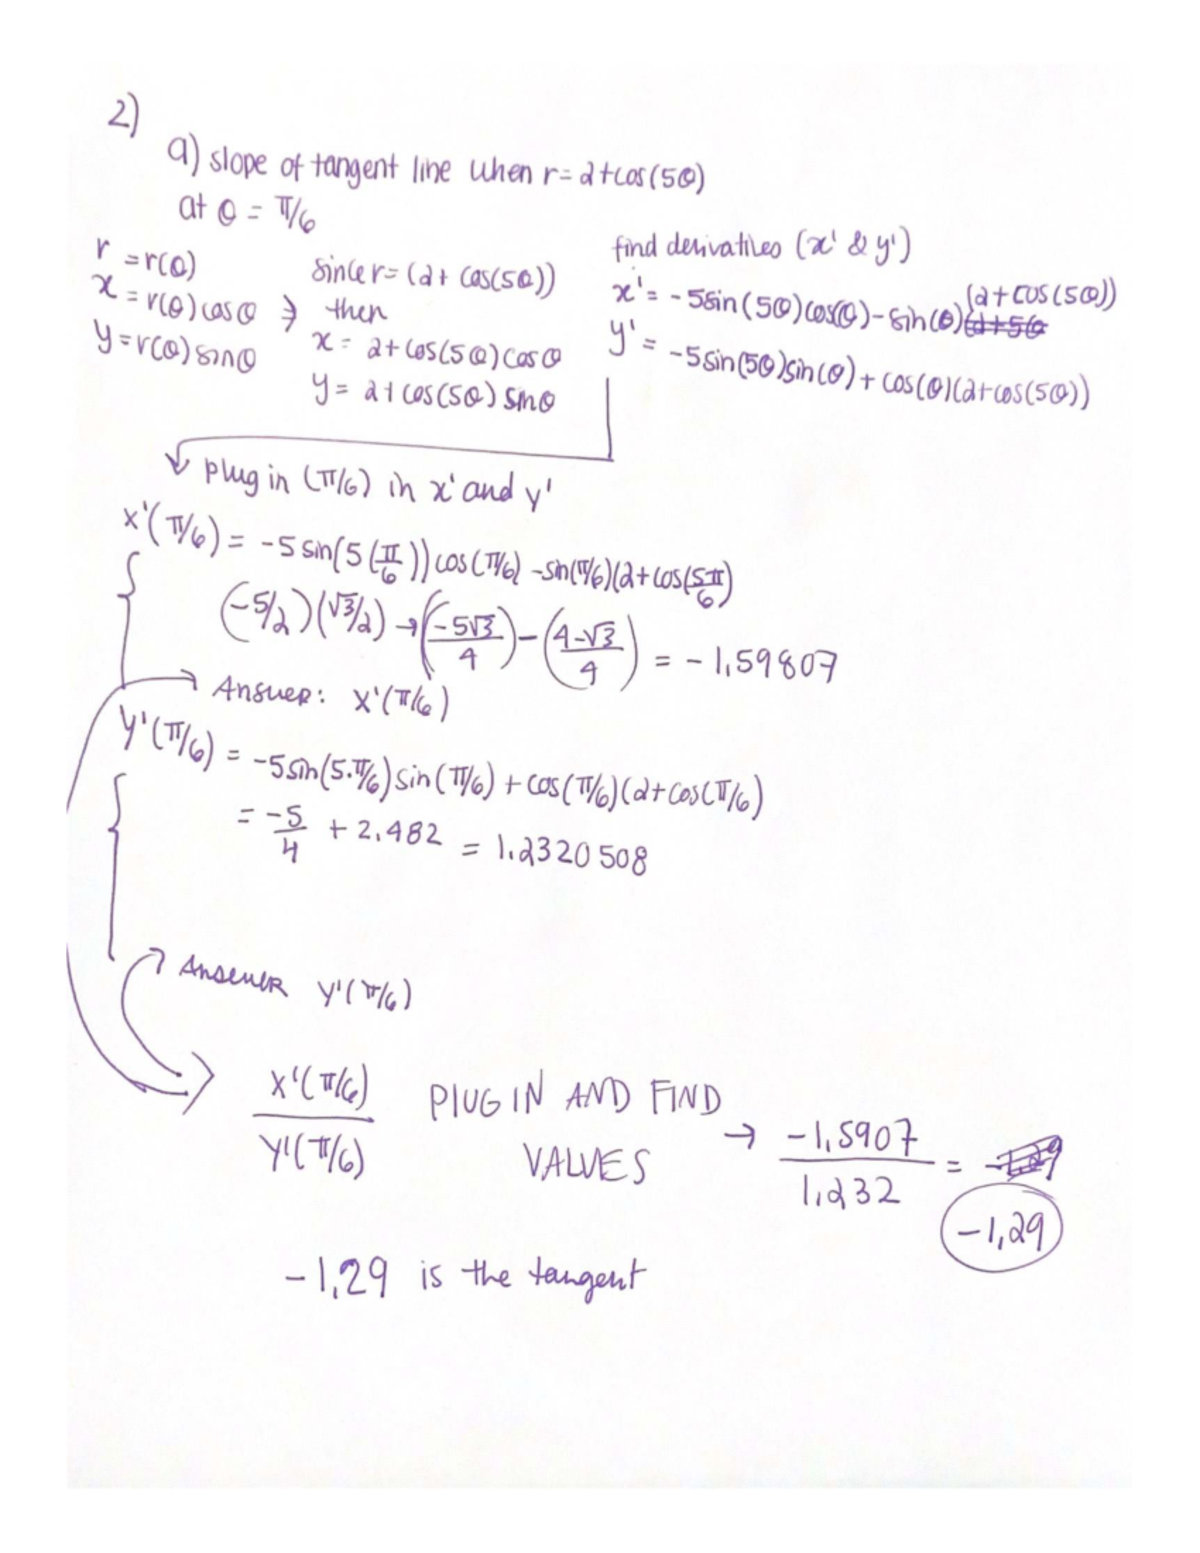 2)
a) slope of tangent line when r = 2+cos(5θ)
at θ = π/6
r = r(θ)
x = r(θ) cos θ ⇒
y = r(θ) sin θ
since r = (2 + cos(5θ))
then
x = 2+cos(5θ) cos θ
y = 2+cos(5θ) sin θ
find derivatives (x' & y')
x' = -5sin(5θ)cos(θ) - sin(θ)(2+cos(5θ))
y' = -5sin(5θ)sin(θ) + cos(θ)(2+cos(5θ))
plug in (π/6) in x' and y'
x'(π/6) = -5 sin(5(π/6)) cos(π/6) - sin(π/6)(2+cos(5π/6)
(-5/2)(√3/2) → (-5√3/4) - (4-√3/4) = -1,59807
Answer: x'(π/6)
y'(π/6) = -5sin(5·π/6) sin(π/6) + cos(π/6)(2+cos(π/6)
= -5/4 + 2.482 = 1.2320508
Answer y'(π/6)
x'(π/6)/y'(π/6) PLUG IN AND FIND
VALUES → -1,5907/1,232 = -1,29
-1,29
-1,29 is the tangent